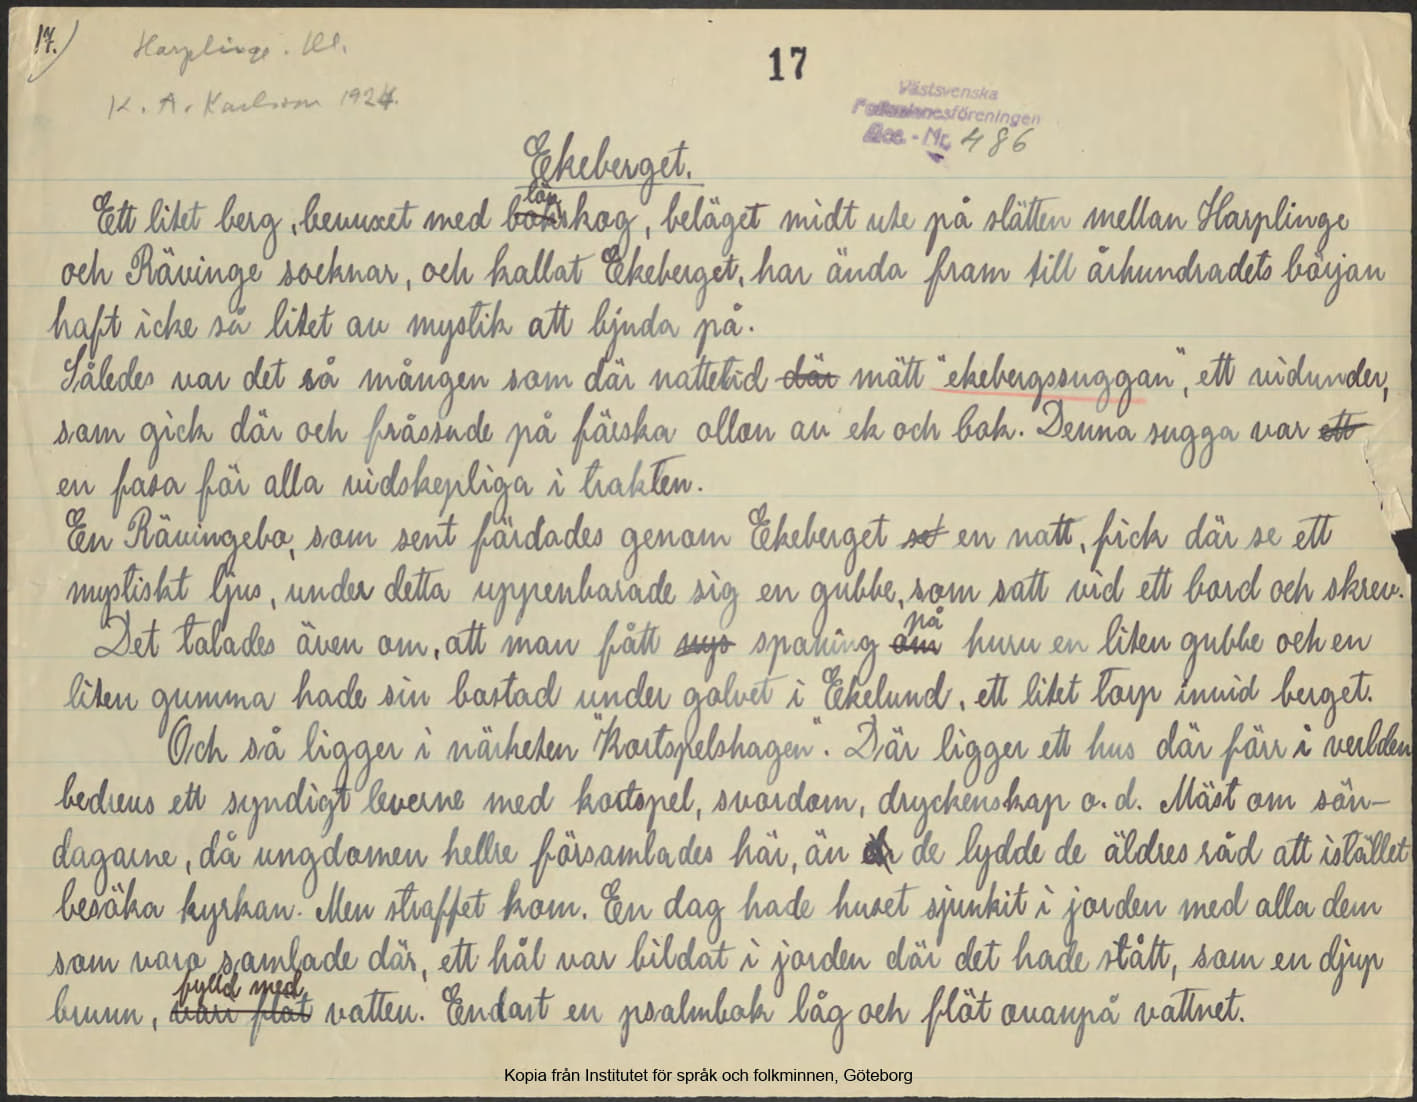 17.)
Harplinge. Hl.
17
K. A. Karlsson 1924.
Västsvenska
Folkminnesföreningen
Acc. - Nr. 486
Ekeberget.
Ett litet berg, bevuxet med löv skog, beläget midt ute på slätten mellan Harplinge
och Rävinge socknar, och kallat Ekeberget, har ända fram till århundradets början
haft icke så litet av mystik att bjuda på.
Således var det så mången som där nattetid där mött "ekebergssuggan", ett vidunder,
som gick där och fråssade på färska ollon av ek och bok. Denna sugga var ett
en fasa för alla vidskepliga i trakten.
En Rävingebo, som sent färdades genom Ekeberget en natt, fick där se ett
mystiskt ljus, under detta uppenbarade sig en gubbe, som satt vid ett bord och skrev.
Det talades även om, att man fått nys spaning om på huru en liten gubbe och en
liten gumma hade sin bostad under golvet i Ekelund, ett litet torp invid berget.
Och så ligger i närheten "Kortspelshagen". Där ligger ett hus där förr i verlden
bedrevs ett syndigt leverne med kortspel, svordom, dryckenskap o. d. Mäst om sön-
dagarne, då ungdomen hellre församlades här, än de lydde de äldres råd att istället
besöka kyrkan. Men straffet kom. En dag hade huset sjunkit i jorden med alla dem
som voro samlade där, ett hål var bildat i jorden där det hade stått, som en djup
brunn, fylld med vatten. Endast en psalmbok låg och flöt ovanpå vattnet.
Kopia från Institutet för språk och folkminnen, Göteborg